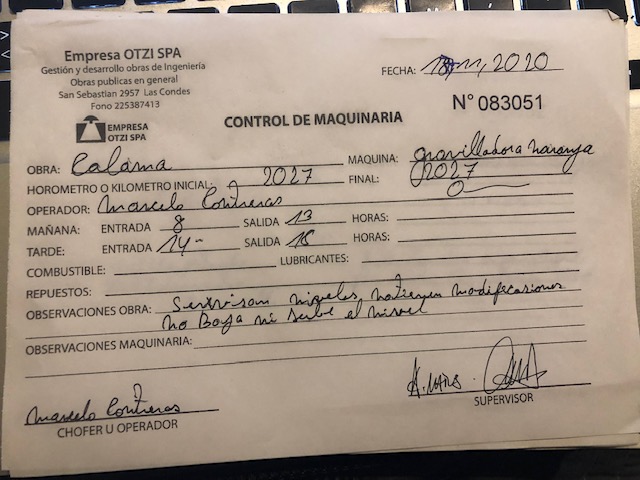 Empresa OTZI SPA
Gestión y desarrollo obras de Ingeniería
Obras publicas en general
San Sebastian 2957 Las Condes
Fono 225387413
FECHA: 2020
EMPRESA
OTZI SPA
CONTROL DE MAQUINARIA
N° 083051
OBRA: Calama
MAQUINA: naranja
HOROMETRO O KILOMETRO INICIAL: 2027
FINAL: 2027
OPERADOR: Marcelo Contreras
MAÑANA: ENTRADA 8 SALIDA 13 HORAS:
TARDE: ENTRADA 14- SALIDA 18 HORAS:
COMBUSTIBLE: LUBRICANTES:
REPUESTOS:
OBSERVACIONES OBRA: niveles modificaciones
no baja ni sube el nivel
OBSERVACIONES MAQUINARIA:
Marcelo Contreras
CHOFER U OPERADOR
SUPERVISOR